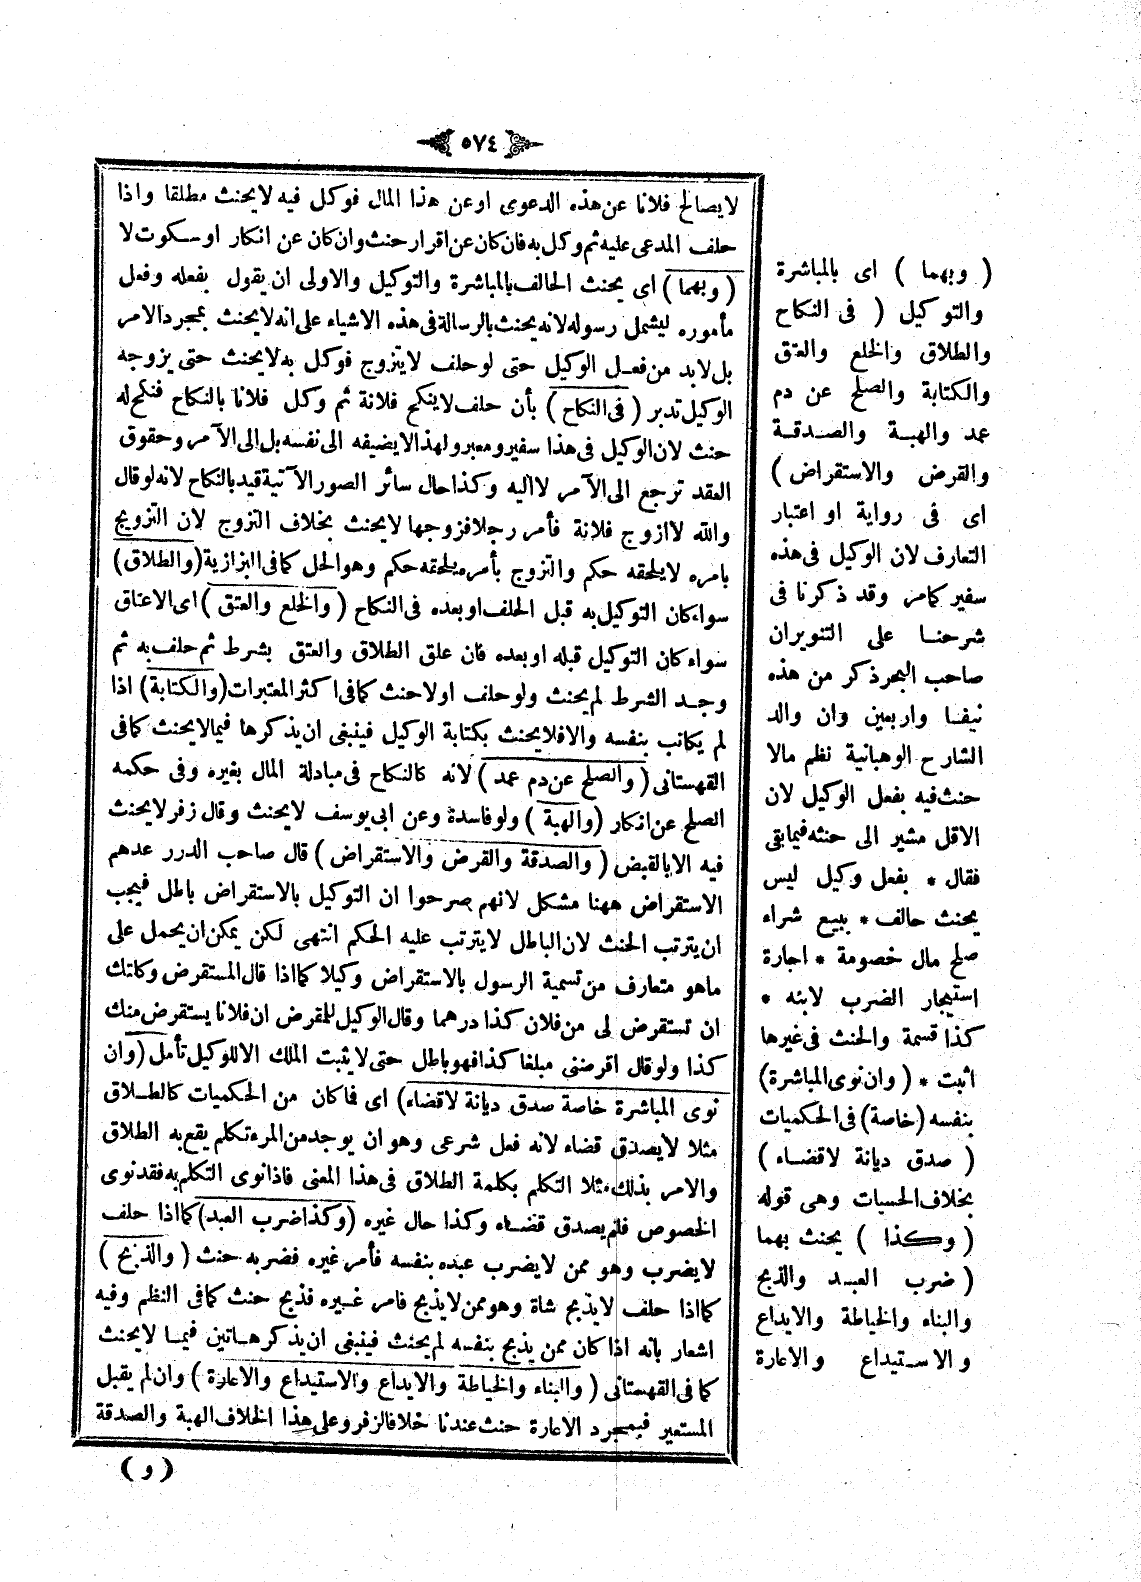 ٥٧٤
لا يصالح فلانا عن هذه الدعوى او عن هذا المال فوكل فيه لا يحنث مطلقا واذا
حلف المدعى عليه ثم وكل به فان كان عن اقرار حنث وان كان عن انكار او سكوت لا
( وبهما ) اى يحنث الحالف بالمباشرة والتوكيل والاولى ان يقول بفعله وفعل
مأموره ليشمل رسوله لانه يحنث بالرسالة فى هذه الاشياء على انه لا يحنث بمجرد الامر
بل لابد من فعل الوكيل حتى لو حلف لا يتزوج فوكل به لا يحنث حتى يزوجه
الوكيل تدبر ( فى النكاح ) بأن حلف لا ينكح فلانة ثم وكل فلانا بالنكاح فنكح له
حنث لان الوكيل فى هذا سفير ومعبر ولهذا لا يضيفه الى نفسه بل الى الآمر وحقوق
العقد ترجع الى الآمر لا اليه وكذا حال سائر الصور الآتية قيد بالنكاح لانه لو قال
والله لا ازوج فلانة فأمر رجلا فزوجها لا يحنث بخلاف التزوج لان التزويج
بامره لا يلحقه حكم والتزوج بأمره يلحقه حكم وهو الحل كما فى البزازية ( والطلاق )
سواء كان التوكيل به قبل الحلف او بعده فى النكاح ( والخلع والعتق ) اى الاعتاق
سواء كان التوكيل قبله او بعده فان علق الطلاق والعتق بشرط ثم حلف به ثم
وجد الشرط لم يحنث ولو حلف اولا حنث كما فى اكثر المعتبرات ( والكتابة ) اذا
لم يكاتب بنفسه والا فلا يحنث بكتابة الوكيل فينبغى ان يذكرها فيما لا يحنث كما فى
القهستانى ( والصلح عن دم عمد ) لانه كالنكاح فى مبادلة المال بغيره وفى حكمه
الصلح عن انكار ( والهبة ) ولو فاسدة وعن ابى يوسف لا يحنث وقال زفر لا يحنث
فيه الا بالقبض ( والصدقة والقرض والاستقراض ) قال صاحب الدرر عدهم
الاستقراض ههنا مشكل لانهم صرحوا ان التوكيل بالاستقراض باطل فيجب
ان يترتب الحنث لان الباطل لا يترتب عليه الحكم انتهى لكن يمكن ان يحمل على
ماهو متعارف من تسمية الرسول بالاستقراض وكيلا كما اذا قال المستقرض وكلتك
ان تستقرض لى من فلان كذا درهما وقال الوكيل للمقرض ان فلانا يستقرض منك
كذا ولو قال اقرضنى مبلغا كذا فهو باطل حتى لا يثبت الملك الا للوكيل تأمل ( وان
نوى المباشرة خاصة صدق ديانة لا قضاء ) اى فما كان من الحكميات كالطلاق
مثلا لا يصدق قضاء لانه فعل شرعى وهو ان يوجد من المرء تكلم يقع به الطلاق
والامر بذلك مثلا التكلم بكلمة الطلاق فى هذا المعنى فاذا نوى التكلم به فقد نوى
الخصوص فلم يصدق قضاء وكذا حال غيره ( وكذا ضرب العبد ) كما اذا حلف
لا يضرب وهو ممن لا يضرب عبده بنفسه فأمر غيره فضربه حنث ( والذبح )
كما اذا حلف لا يذبح شاة وهو ممن لا يذبح فامر غيره فذبح حنث كما فى النظم وفيه
اشعار بانه اذا كان ممن يذبح بنفسه لم يحنث فينبغى ان يذكر هاتين فيما لا يحنث
كما فى القهستانى ( والبناء والخياطة والايداع والاستيداع والاعارة ) وان لم يقبل
المستعير فبمجرد الاعارة حنث عندنا خلافا لزفر وعلى هذا الخلاف الهبة والصدقة
( و )
( وبهما ) اى بالمباشرة
والتوكيل ( فى النكاح
والطلاق والخلع والعتق
والكتابة والصلح عن دم
عمد والهبة والصدقة
والقرض والاستقراض )
اى فى رواية او اعتبار
التعارف لان الوكيل فى هذه
سفير كامر وقد ذكرنا فى
شرحنا على التنوير ان
صاحب البحر ذكر من هذه
نيفا واربعين وان والد
الشارح الوهبانية نظم مالا
حنث فيه بفعل الوكيل لان
الاقل مشير الى حنثه فيما بقى
فقال * بفعل وكيل ليس
يحنث حالف * ببيع شراء
صلح مال خصومة * اجارة
استيجار الضرب لابنه *
كذا قسمة والحنث فى غيرها
اثبت * ( وان نوى المباشرة )
بنفسه ( خاصة ) فى الحكميات
( صدق ديانة لا قضاء )
بخلاف الحسيات وهى قوله
( وكذا ) يحنث بهما
( ضرب العبد والذبح
والبناء والخياطة والايداع
والاستيداع والاعارة